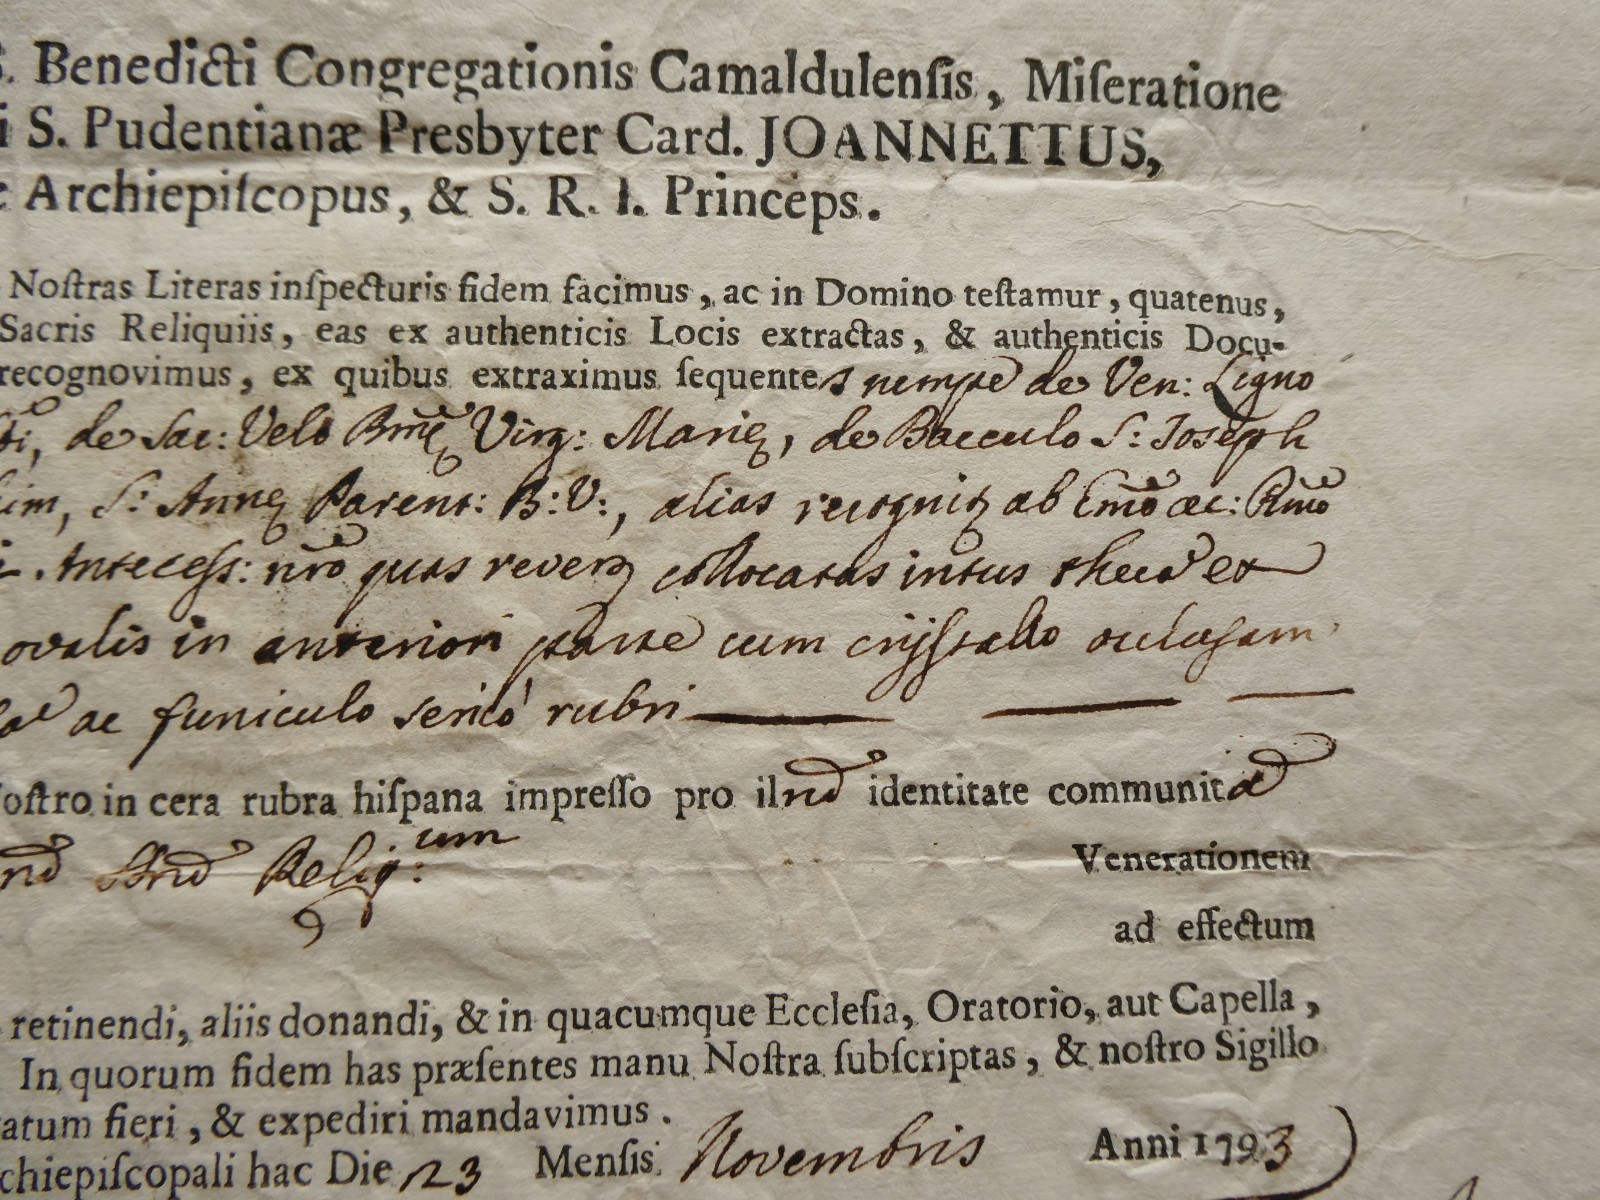 S. Benedicti Congregationis Camaldulenſis, Miſeratione
i S. Pudentianæ Presbyter Card. JOANNETTUS,
Archiepiſcopus, & S. R. I. Princeps.
Noſtras Literas inſpecturis fidem facimus, ac in Domino teſtamur, quatenus,
Sacris Reliquiis, eas ex authenticis Locis extractas, & authenticis Docu-
recognovimus, ex quibus extraximus ſequentes nempe de Ven: Ligno
de Sac: Velo Bmę Virg: Marię, de Bacculo S: Joseph
im, S: Annę Parent: B: V:, alias recognit ab Emo ac: Rmo
Antecess: nro quas rever collocatas intus theca ex
ovalis in anteriori parte cum crijstallo oclusam
ac funiculo serico rubri
oſtro in cera rubra hiſpana impreſſo pro ilrd identitate communita
Reliq:um
Venerationem
ad effectum
retinendi, aliis donandi, & in quacumque Eccleſia, Oratorio, aut Capella,
In quorum fidem has præſentes manu Noſtra ſubſcriptas, & noſtro Sigillo
atum fieri, & expediri mandavimus.
chiepiſcopali hac Die 23 Menſis Novembris Anni 1793